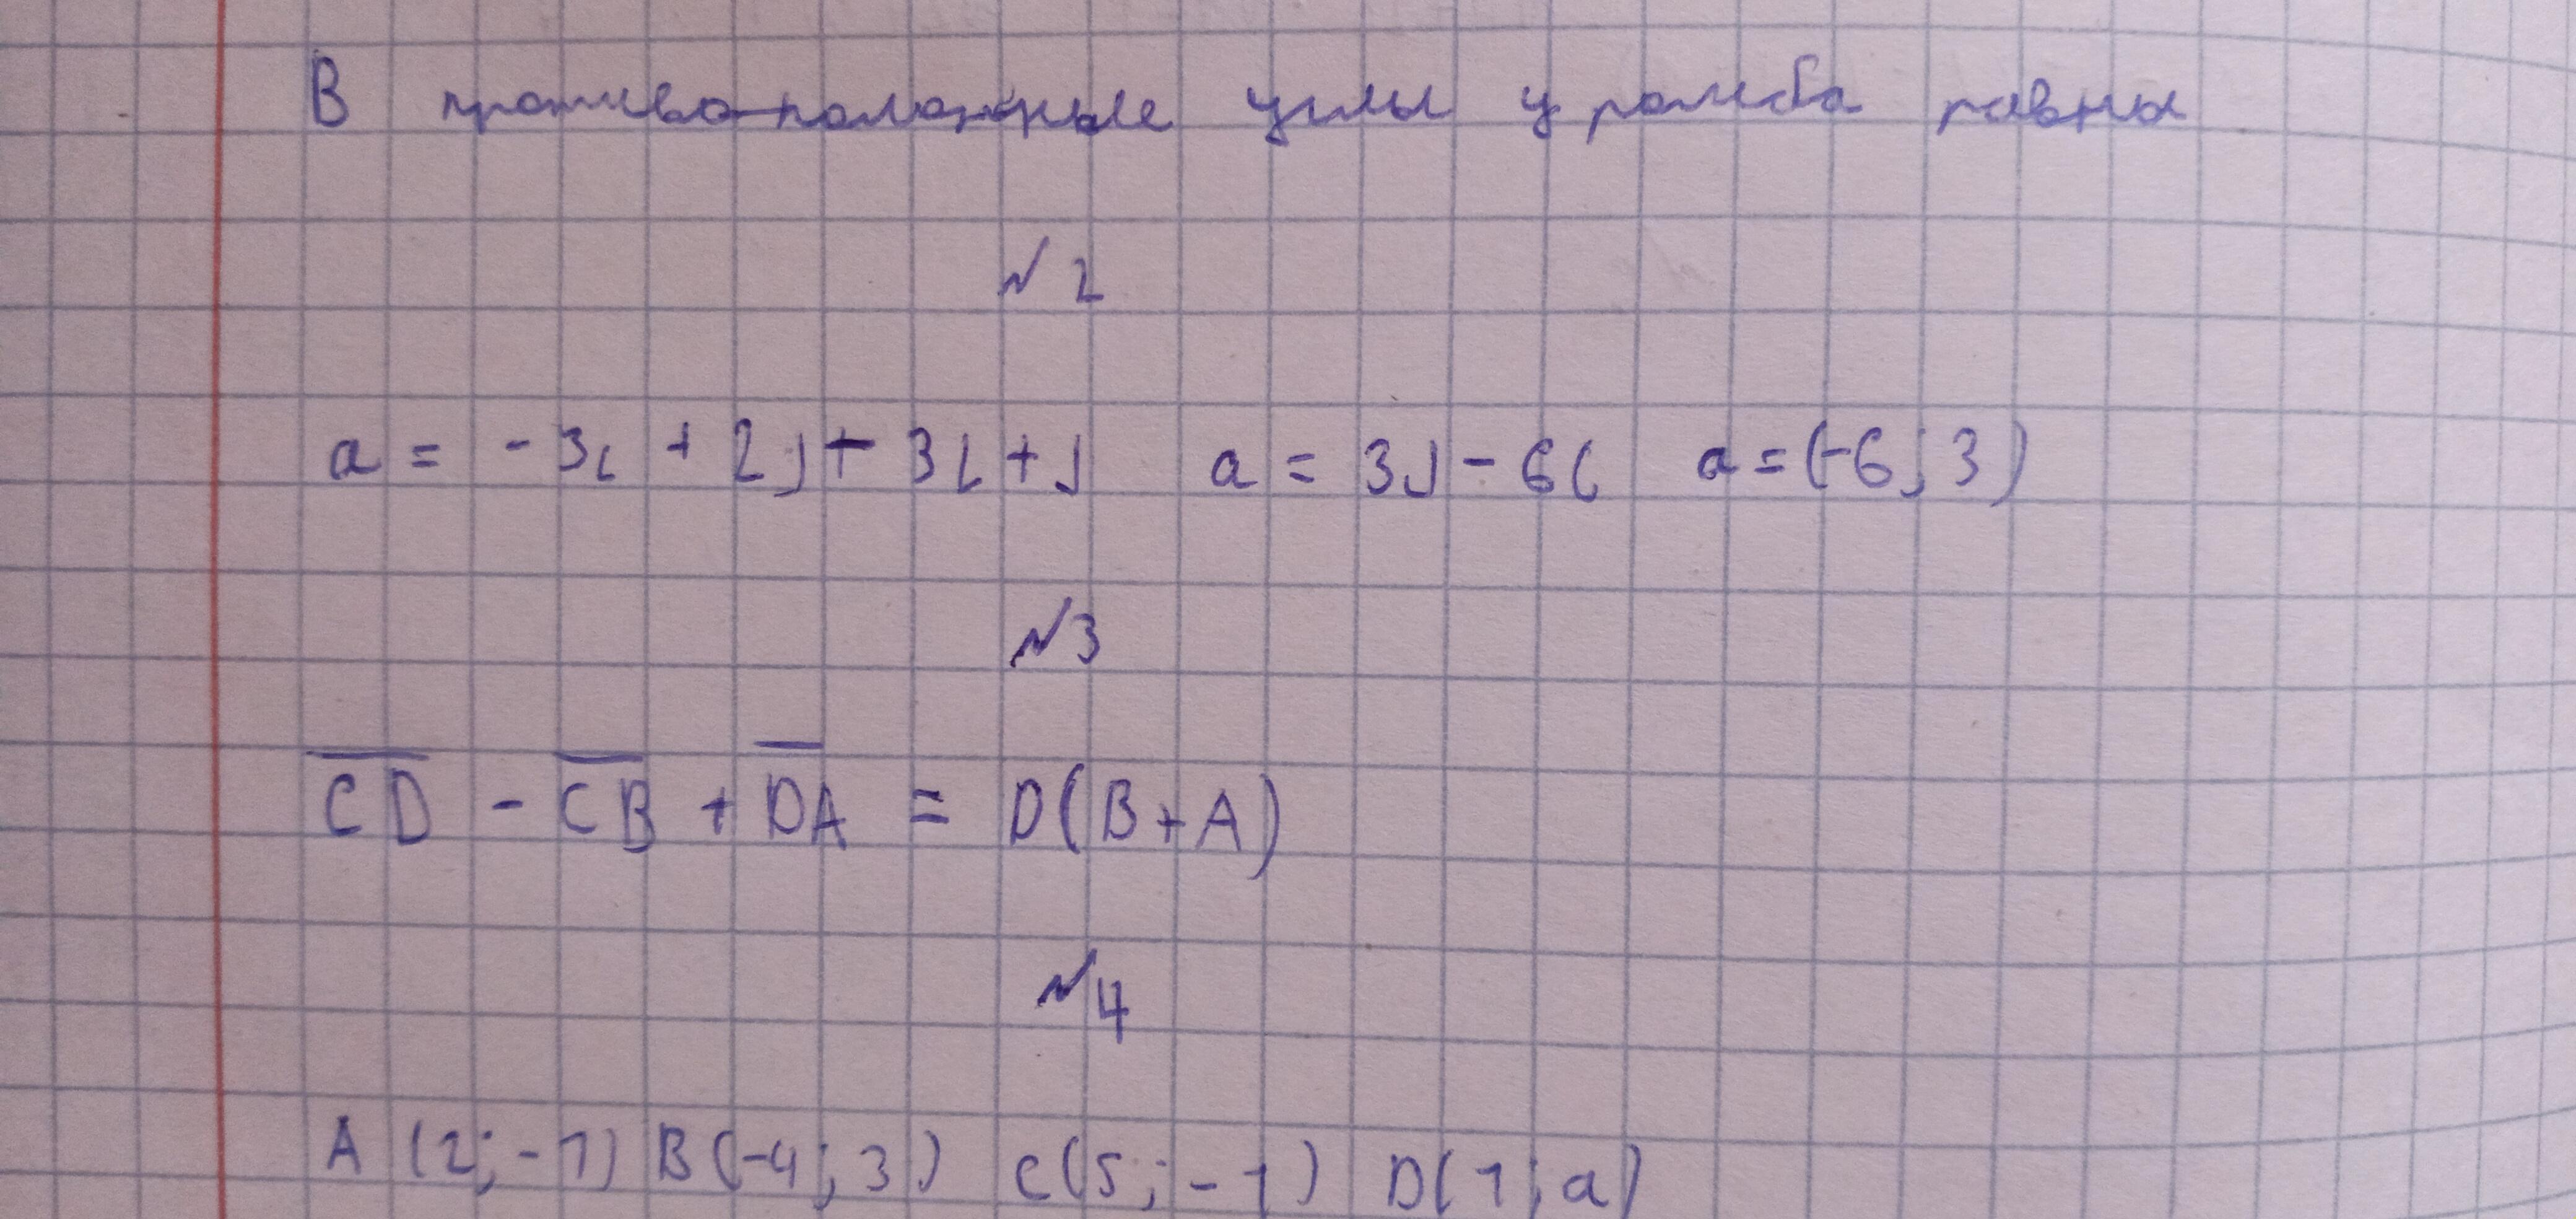 В противо-положные углы у ромба равны
№2
a = - 3i + 2j + 3i + j a = 3j - 6i a = (-6; 3)
№3
C͞D - C͞B + D͞A = D(B+A)
№4
A (2; -1) B(-4; 3) C(5; -1) D(1; a)